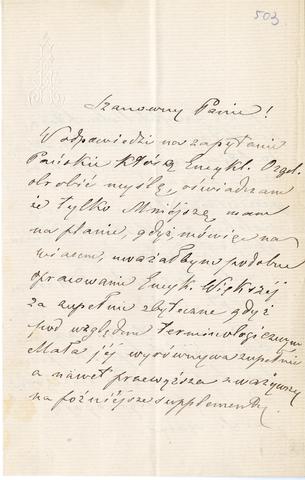 503
Szanowny Panie!
W odpowiedzi na zapytanie
Pańskie którą Encykl. Orgel.
obrobić myślę, oświadczam
że tylko Mniejszą mam
na planie, gdyż mówiąc na
wiasem, uważałbym podobne
opracowanie Encyk. Większéj
za zupełnie zbyteczne gdyż
pod względem terminologicznym
Mała jéj wyrównywa zupełnie
a nawet przewyższa zważywszy
na późniejsze supplementy.